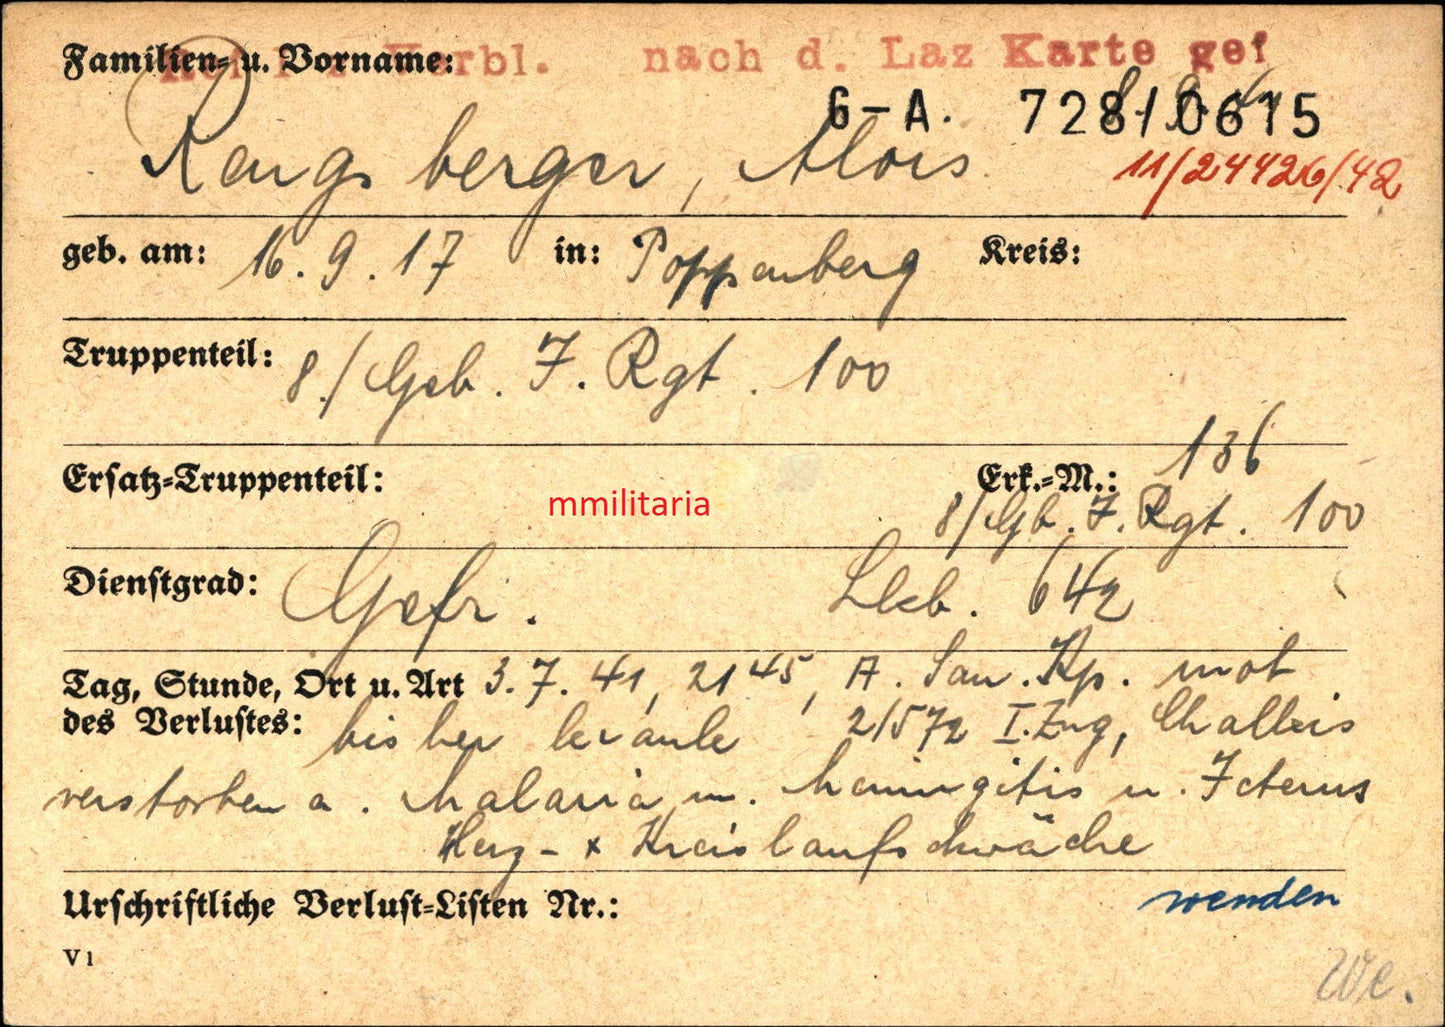 Familien= u. Vorname: nach d. Laz Karte gef
G-A. 728/0615
Rengsberger, Alois 11/24426/42
geb. am: 16.9.17 in: Poppenberg Kreis:
Truppenteil: 8./Geb. I. Rgt. 100
Ersatz=Truppenteil: Erk.=M.: 136
mmilitaria
8/Gb. I. Rgt. 100
Dienstgrad: Gefr. 642
Tag, Stunde, Ort u. Art 3.7.41, 21 45, San. Kp. mot
des Verlustes: bisher 2/572 I. Zug,
verstorben a. Malaria m. Meningitis u. Icterus
Herz- x Kreislaufschwäche
Urschriftliche Verlust=Listen Nr.: wenden
V 1
We.